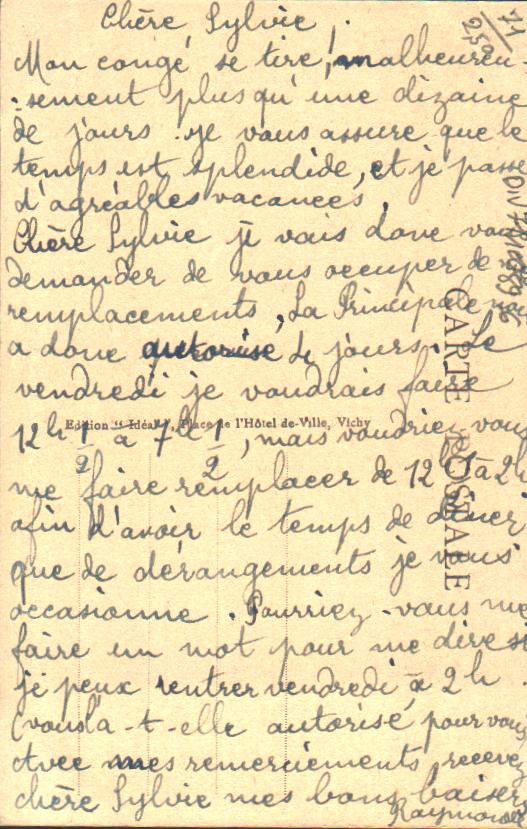 Chère Sylvie !
Mon congé se tire, malheureu-
-sement plus qu'une dizaine
de jours. Je vous assure que le
temps est splendide, et je passe
d'agréables vacances,
Chère Sylvie je vais donc vous
demander de vous occuper de
remplacements, la Principale
a donc autorisé de jours. Le
vendredi je voudrais faire
12h 1/2 à 7h 1/2, mais voudriez vous
me faire remplacer de 12h à 2h
afin d'avoir le temps de dîner
que de dérangements je vous
occasionne. Pourriez-vous me
faire un mot pour me dire si
je peux rentrer vendredi à 2h.
(vous l'a-t-elle autorisé, pour vous
Avec mes remerciements, recevez
chère Sylvie mes bons baisers
Raymonde
Edition "Idéale", Place de l'Hôtel de-Ville, Vichy
CARTE POSTALE